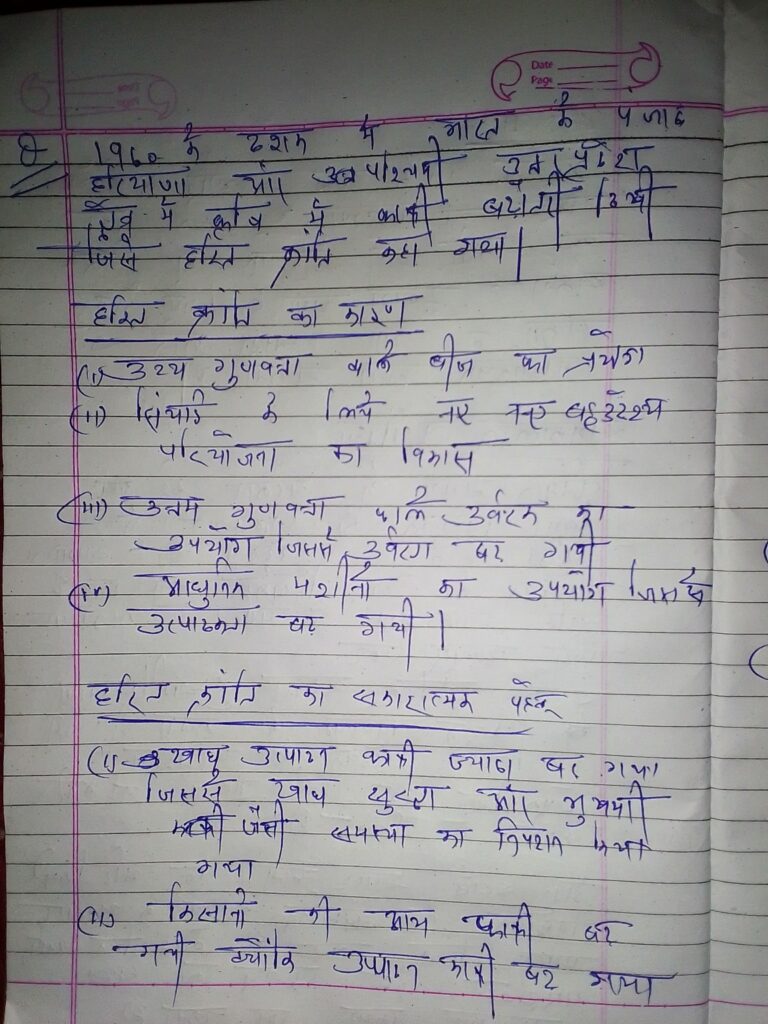 Date
Page
Q 1960 के दशक में भारत के पंजाब
हरियाणा और पश्चिमी उत्तर प्रदेश
में कृषि में काफी बढ़ोतरी
जिसे हरित क्रांति कहा गया।
हरित क्रांति का कारण
(i) उच्च गुणवत्ता वाले बीज का प्रयोग
(ii) सिंचाई के लिये नए नए बहुउद्देश्य
परियोजना का विकास
(iii) उत्तम गुणवत्ता वाले उर्वरक का
उपयोग जिससे उर्वरता बढ़ गयी
(iv) आधुनिक मशीनों का उपयोग जिससे
उत्पादकता बढ़ गयी।
हरित क्रांति का सकारात्मक पहलू
(i) खाद्य उत्पादन काफी ज्यादा बढ़ गया
जिससे खाद्य सुरक्षा और भुखमरी
जैसी समस्या का निपटान किया
गया
(ii) किसानों की आय काफी बढ़
गयी क्योंकि उत्पादन काफी बढ़ गया